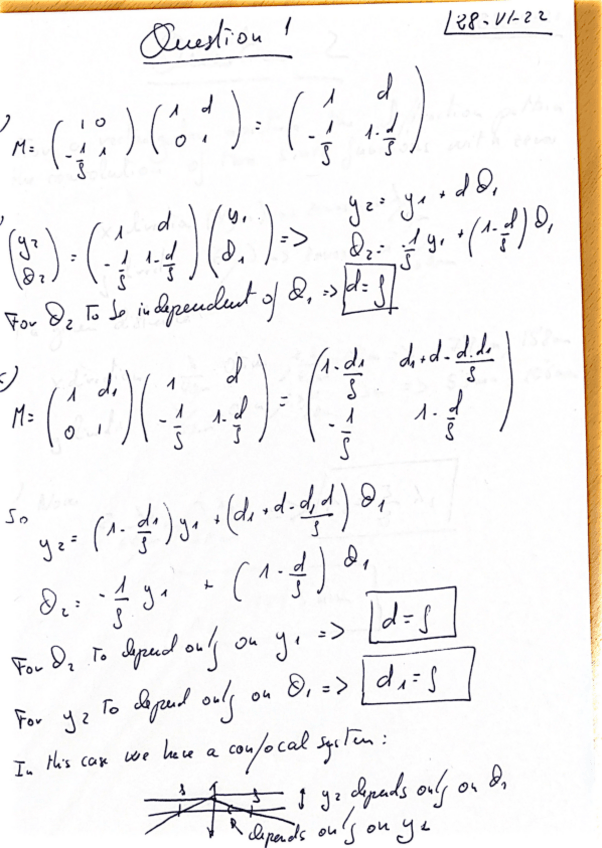 28-VI-22
Question 1
) M= (1 0; -1/f 1) (1 d; 0 1) = (1 d; -1/f 1-d/f)
(y2; θ2) = (1 d; -1/f 1-d/f) (y1; θ1) => y2= y1 + d θ1
θ2= -1/f y1 + (1-d/f) θ1
For θ2 To be independent of θ1 => d=f
c) M= (1 d1; 0 1) (1 d; -1/f 1-d/f) = (1-d1/f d1+d-d.d1/f; -1/f 1-d/f)
So
y2= (1-d1/f) y1 + (d1+d-d1d/f) θ1
θ2= -1/f y1 + (1-d/f) θ1
For θ2 To depend only on y1 => d=f
For y2 To depend only on θ1 => d1=f
In this case we have a confocal system:
f f y2 depends only on θ1
depends only on y1